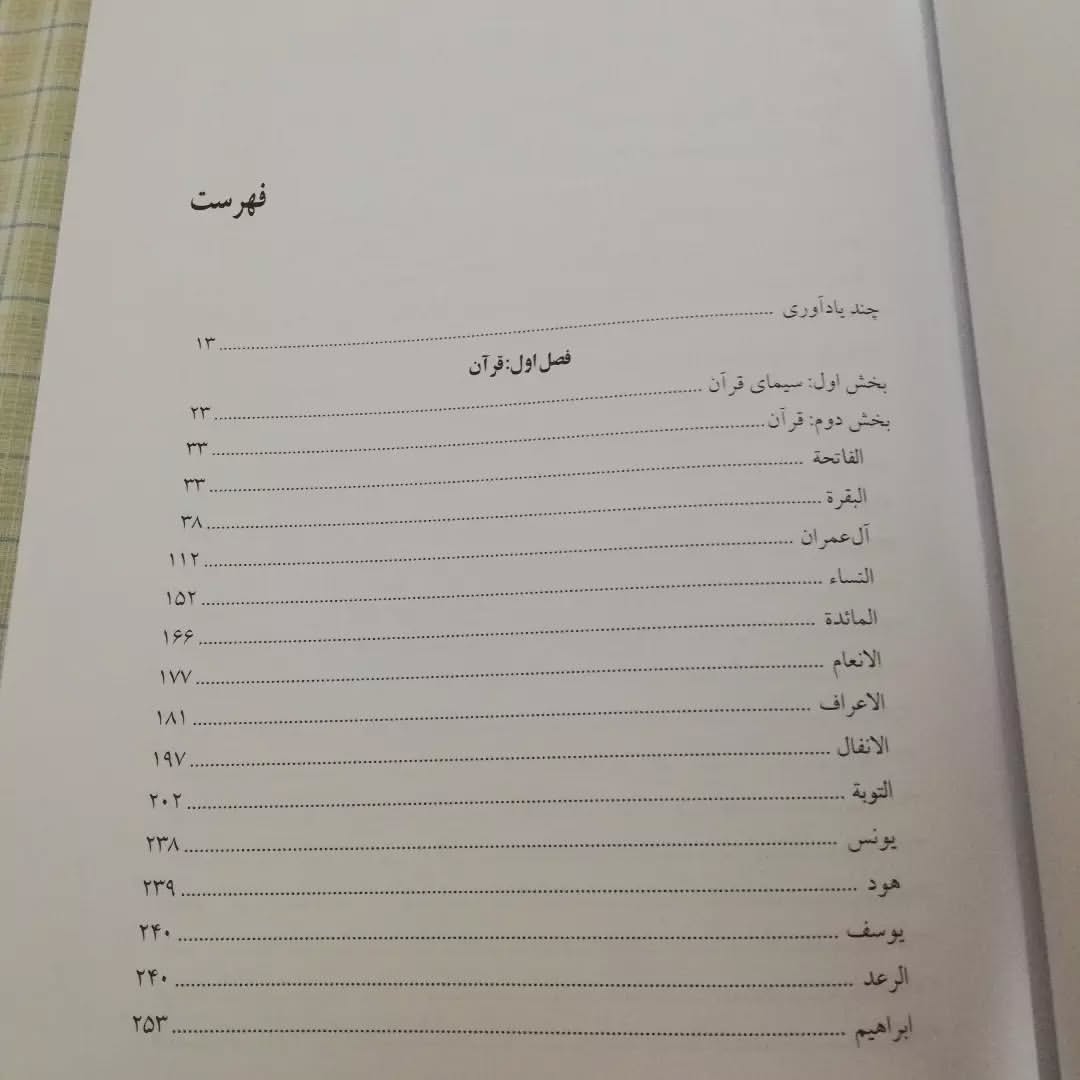 فهرست
چند یادآوری ........ ۱۳
فصل اول: قرآن
بخش اول: سیمای قرآن ........ ۲۳
بخش دوم: قرآن ........ ۳۳
الفاتحة ........ ۳۳
البقرة ........ ۳۸
آل‌عمران ........ ۱۱۲
النساء ........ ۱۵۲
المائدة ........ ۱۶۶
الانعام ........ ۱۷۷
الاعراف ........ ۱۸۱
الانفال ........ ۱۹۷
التوبة ........ ۲۰۲
یونس ........ ۲۳۸
هود ........ ۲۳۹
یوسف ........ ۲۴۰
الرعد ........ ۲۴۰
ابراهیم ........ ۲۵۳